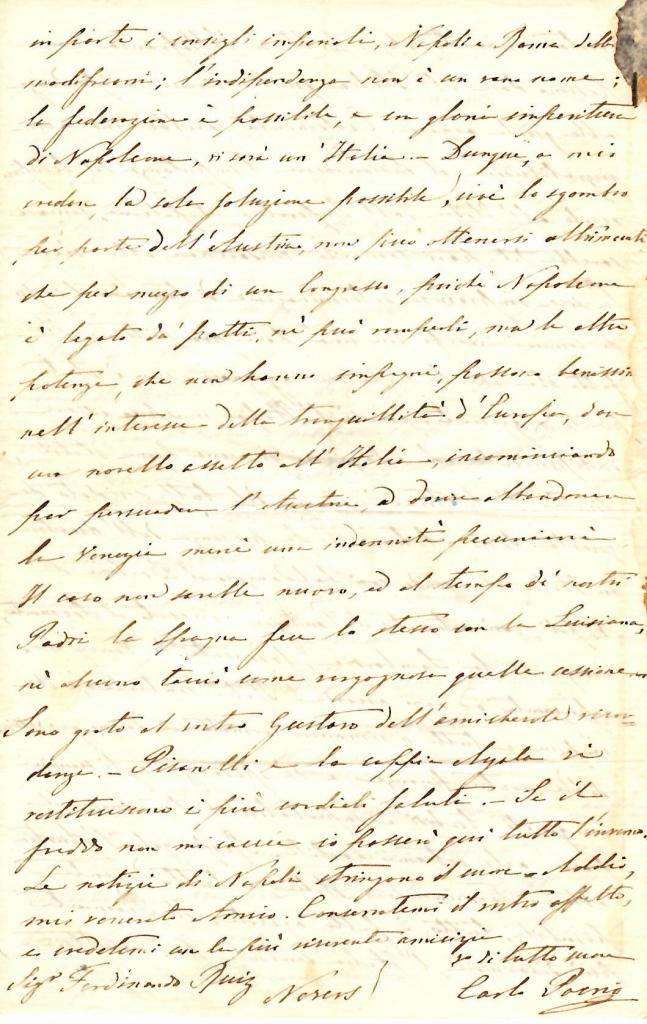 in parte i consigli imperiali, Napoli e Roma delle
modificazioni; l'indipendenza non è un vano nome;
la federazione è possibile, e un gloria imperitura
di Napoleone, vi sarà un'Italia. – Dunque, a mio
credere, la sola soluzione possibile, cioè lo sgombro
per parte dell'Austria, non può ottenersi altrimenti
che per mezzo di un Congresso, poiché Napoleone
è legato da' patti, nè può romperli, ma le altre
potenze, che non hanno impegni, possono benissimo
nell'interesse della tranquillità d'Europa, dare
un novello assetto all'Italia, incominciando
per persuadere l'Austria, a dover abbandonare
la Venezia mercè una indennità pecuniaria
Il caso non sarebbe nuovo, ed al tempo de' nostri
Padri la Spagna fece lo stesso con la Luisiana,
nè alcuno tacciò come vergognosa quella cessione.
Sono grato al vostro Gustavo dell'amichevole ricor-
danza. – Pisanelli e la Ayala vi
restituiscono i più cordiali saluti. – Se il
freddo non mi caccia io passerò qui tutto l'inverno.
Le notizie di Napoli stringono il cuore – Addio,
mio venerato Amico. Conservatemi il vostro affetto,
e credetemi con la più riverente amicizia
Sigr Ferdinando Ruiz
Nevers
vo di tutto cuore
Carlo Poerio